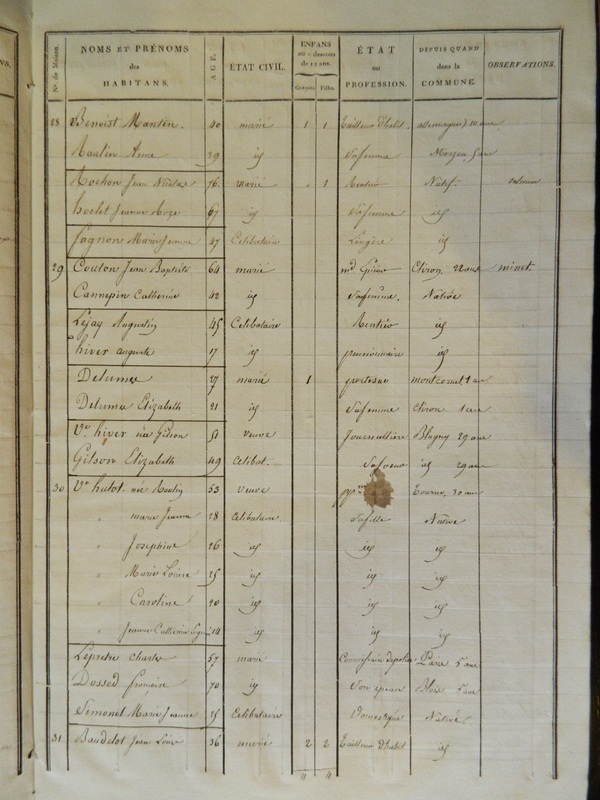 Nº. de Maison. NOMS ET PRÉNOMS des HABITANS. AGE. ÉTAT CIVIL. ENFANS au-dessous de 12 ans. Garçons Filles. ÉTAT ou PROFESSION. DEPUIS QUAND dans la COMMUNE. OBSERVATIONS.
28 Benoist Martin. 40 marié 1 1 Tailleur d'habit. 10 ans
Raulin Anne 39 id Sa femme 5 ans
Rochon Jean Nicolas 76. marié 1 Rentier Natif.
Jeanne Roze 67 id Sa femme id
Fagnon Marie Jeanne 47 Celibataire Lingère id
29 Couton Jean Baptiste 64 marié md Epicier Cliron, 22 ans
Cannepin Catherine 42 id Sa femme. Native
Lejay Augustin 45 Celibataire Rentier id
hiver auguste 17 id pensionnaire id
Delumee 27 marié 1 montcornet 1 an
Delumee Elizabeth 21 id Sa femme Cliron 1 an
Ve. hiver née Gilson 51 Veuve Journalliere Blagny 29 ans
Gilson Elizabeth 49 Celibat. Sa soeur id 29 ans
30 Ve hulot née Roulin 53 Veuve Tournes, 30 ans
" marie Jeanne 28 Celibataire. Sa fille Native
" Josephine 26 id id id
" Marie Louise 25 id id id
" Caroline 20 id id id
" Jeanne Catherine 14 id id id
Lepretre Charles 57 marié Commissaire de police Paris 5 ans
Dossed françoise 70 id Son epouse Blois 5 ans
Simonet Marie Jeanne 25 Celibataire Domestique Native
31 Baudelot Jean Louis 36 marié 2 2 Tailleur d'habit id